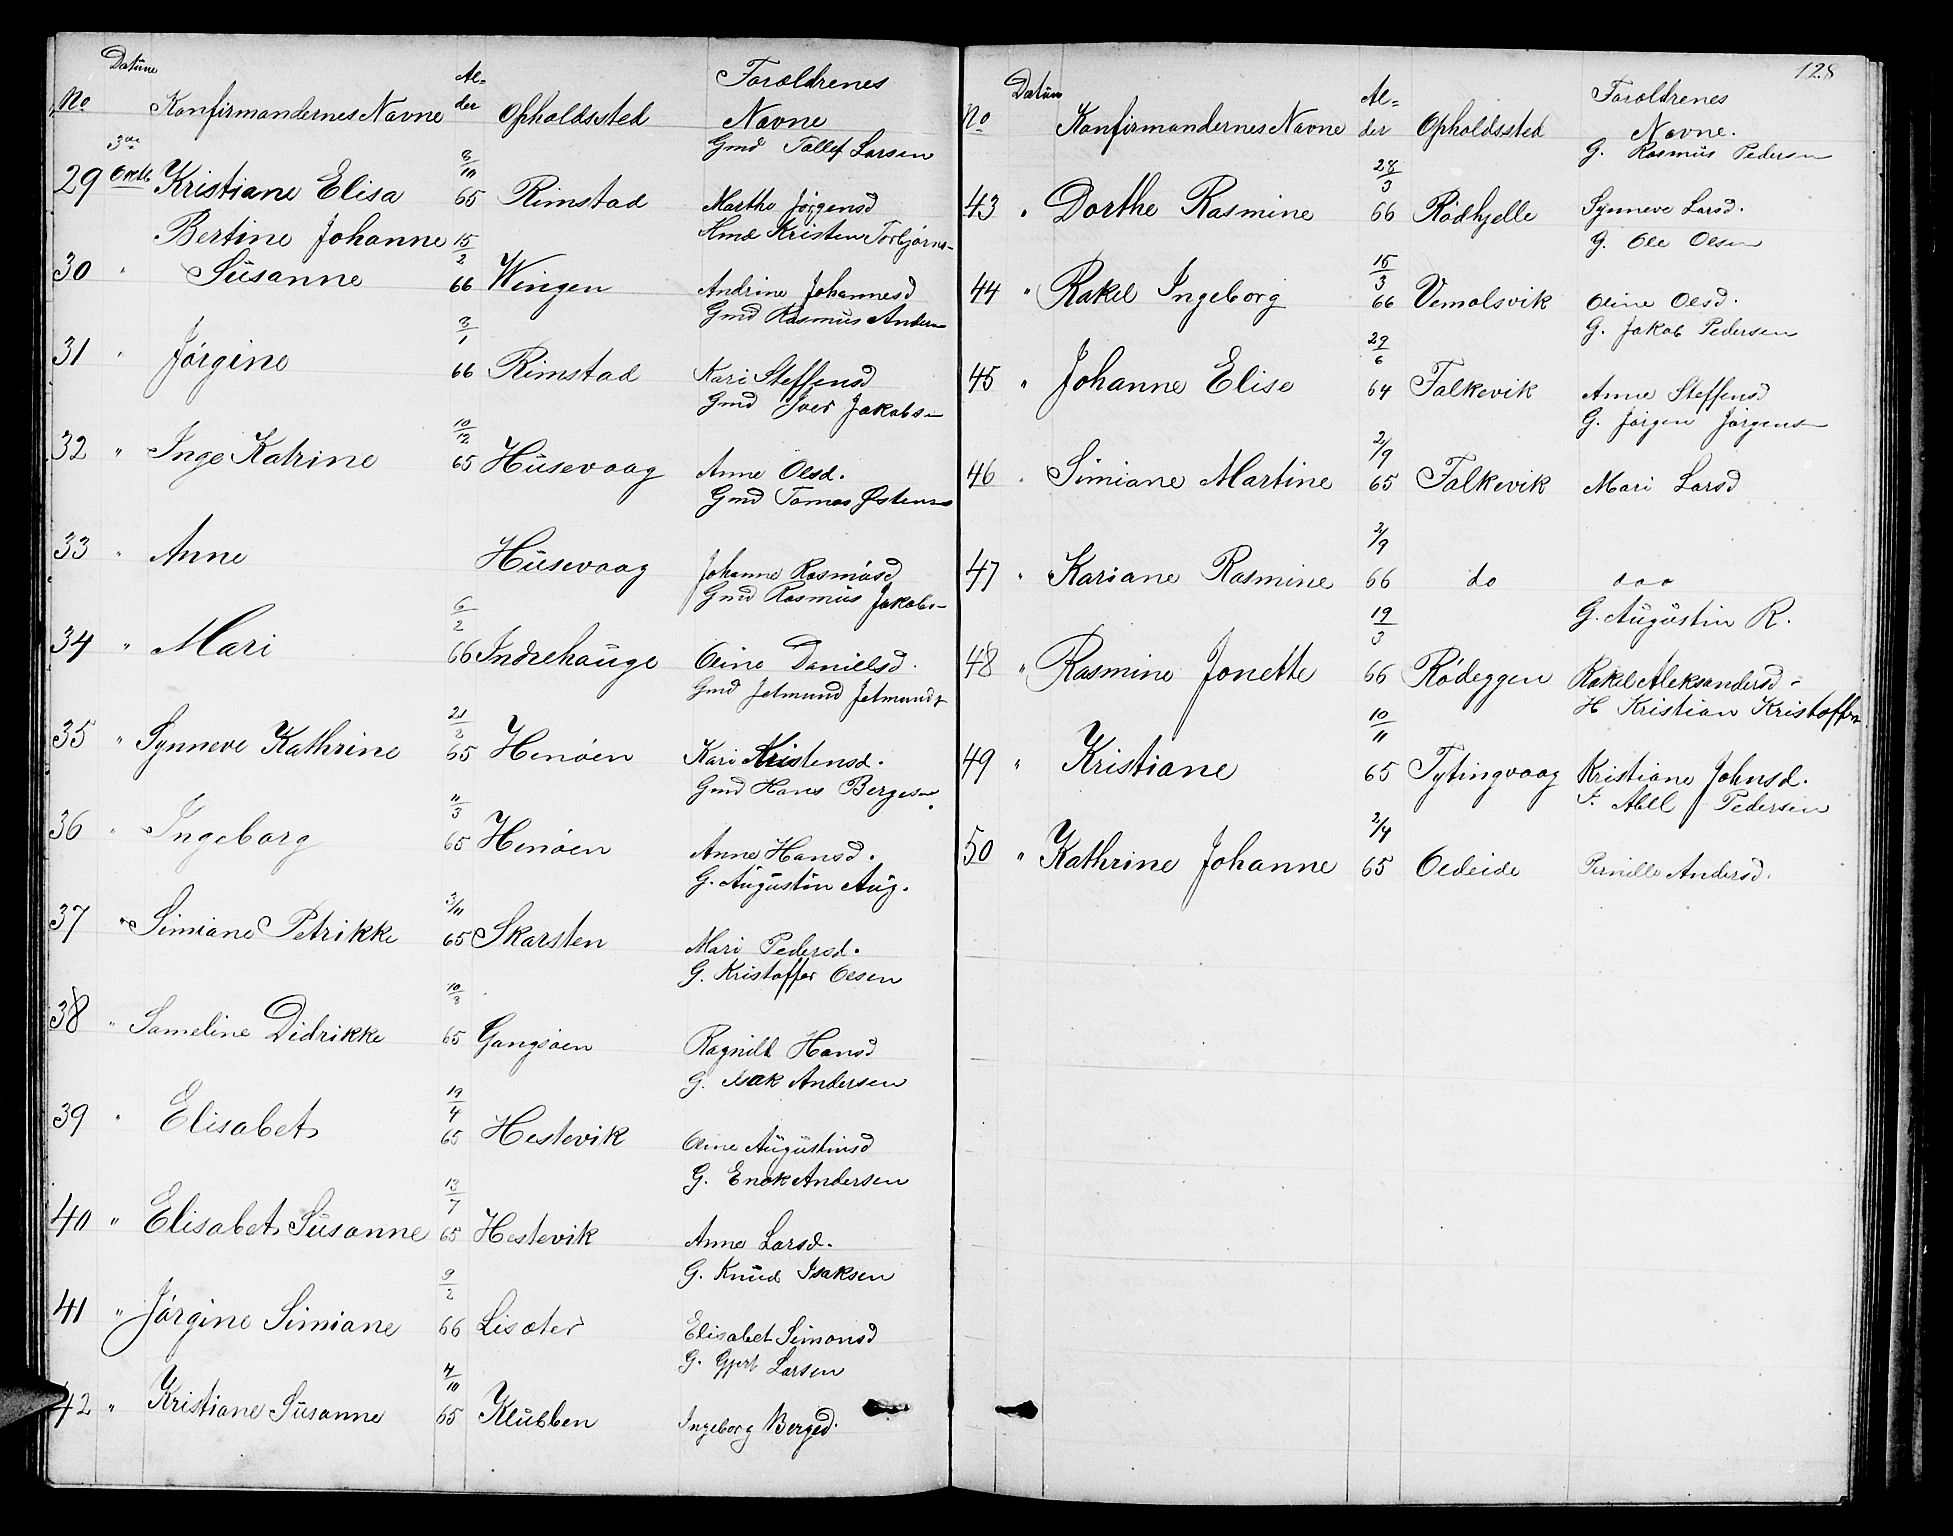 Datum
No Konfirmandernes Navne Al= der Opholdssted Forældrenes Navne
3die Oktb
Gmd Tollef Larsen
29 Kristiane Elisa 8/10 65 Rimstad Marthe Jørgensd
Bertine Johanne Hmd Kristen Torbjørns
30 " Susanne 15/2 66 Wingen Andrine Johannesd
Gmd Rasmus Anders
31 " Jørgine 8/1 66 Rimstad Kari Steffensd
Gmd Iver Jakobs
32 " Inge Katrine 10/12 65 Husevaag Anne Olsd.
Gmd Tomas Østens
33 " Anne Husevaag Johanne Rasmusd
Gmd Rasmus Jakobs
34 " Mari 6/2 66 Indrehauge Oline Danielsd.
Gmd Jetmund Jetmunds
35 " Synneve Kathrine 21/3 65 Henøen Kari Kristensd.
Gmd Hans Berges
36 " Ingeborg 11/3 65 Henøen Anne Hansd.
G. Augustin Aug.
37 " Simiane Petrikke 3/11 65 Skarsten Mari Pedersd.
G. Kristoffer Olsen
38 " Sameline Didrikke 10/3 65 Gangsøen Ragnild Hansd
G. Isak Andersen
39 " Elisabet 19/4 65 Hestevik Oline Augustinsd
G. Enok Andersen
40 " Elisabet Susanne 13/7 65 Hestevik Anne Larsd.
G. Knud Isaksen
41 " Jørgine Simiane 9/2 66 Lisæter Elisabet Simonsd
G. Gjert Larsen
42 " Kristiane Susanne 4/10 65 Klubben Ingeborg Bergsd.
128
Datum
No Konfirmandernes Navne Al= der Opholdssted Forældrenes Navne.
G. Rasmus Pedersen
43 " Dorthe Rasmine 28/3 66 Rødhjelle Synneve Larsd.
G. Ole Olsen
44 " Rakel Ingeborg 15/3 66 Vemolsvik Oline Olsd.
G. Jakob Pedersen
45 " Johanne Elise 29/6 64 Falkevik Anne Steffensd
G. Jørgen Jørgens
46 " Simiane Martine 2/9 65 Falkevik Mari Larsd
47 " Kariane Rasmine 2/9 66 do
G. Augustin R.
48 " Rasmine Jonette 19/3 66 Rødeggen Rakel Aleksandersd
H Kristian Kristoffers
49 " Kristiane 10/11 65 Tytingvaag Kristiane Johnsd.
Abel Pedersen
50 " Kathrine Johanne 2/4 65 Oldeide Pernille Andersd.